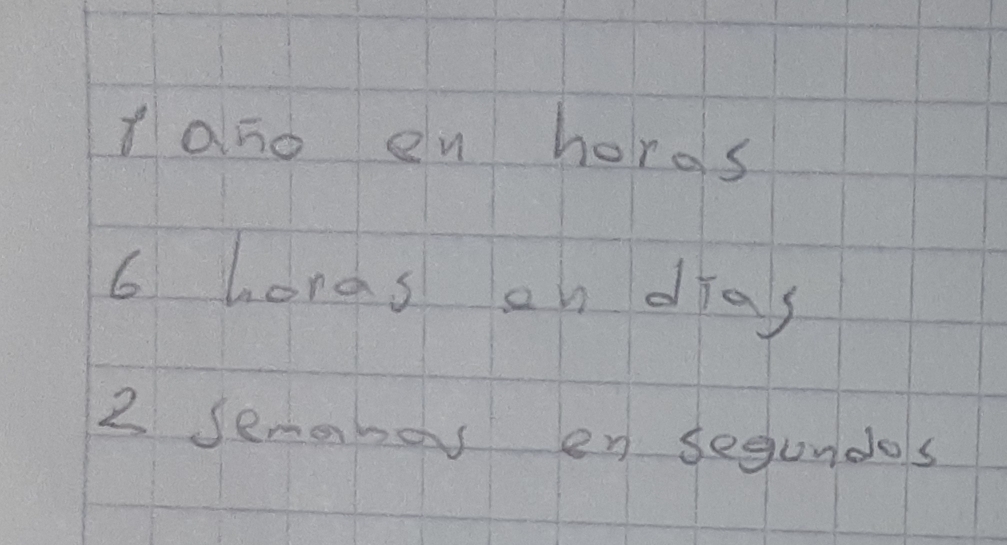 1 año en horas
6 horas en días
2 semanas en segundos